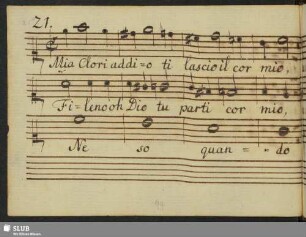 21.
Mia Clori addi=o ti lascio il cor mio,
Fi=leno oh Dio tu parti cor mio,
Ne so quan==do
SLUB